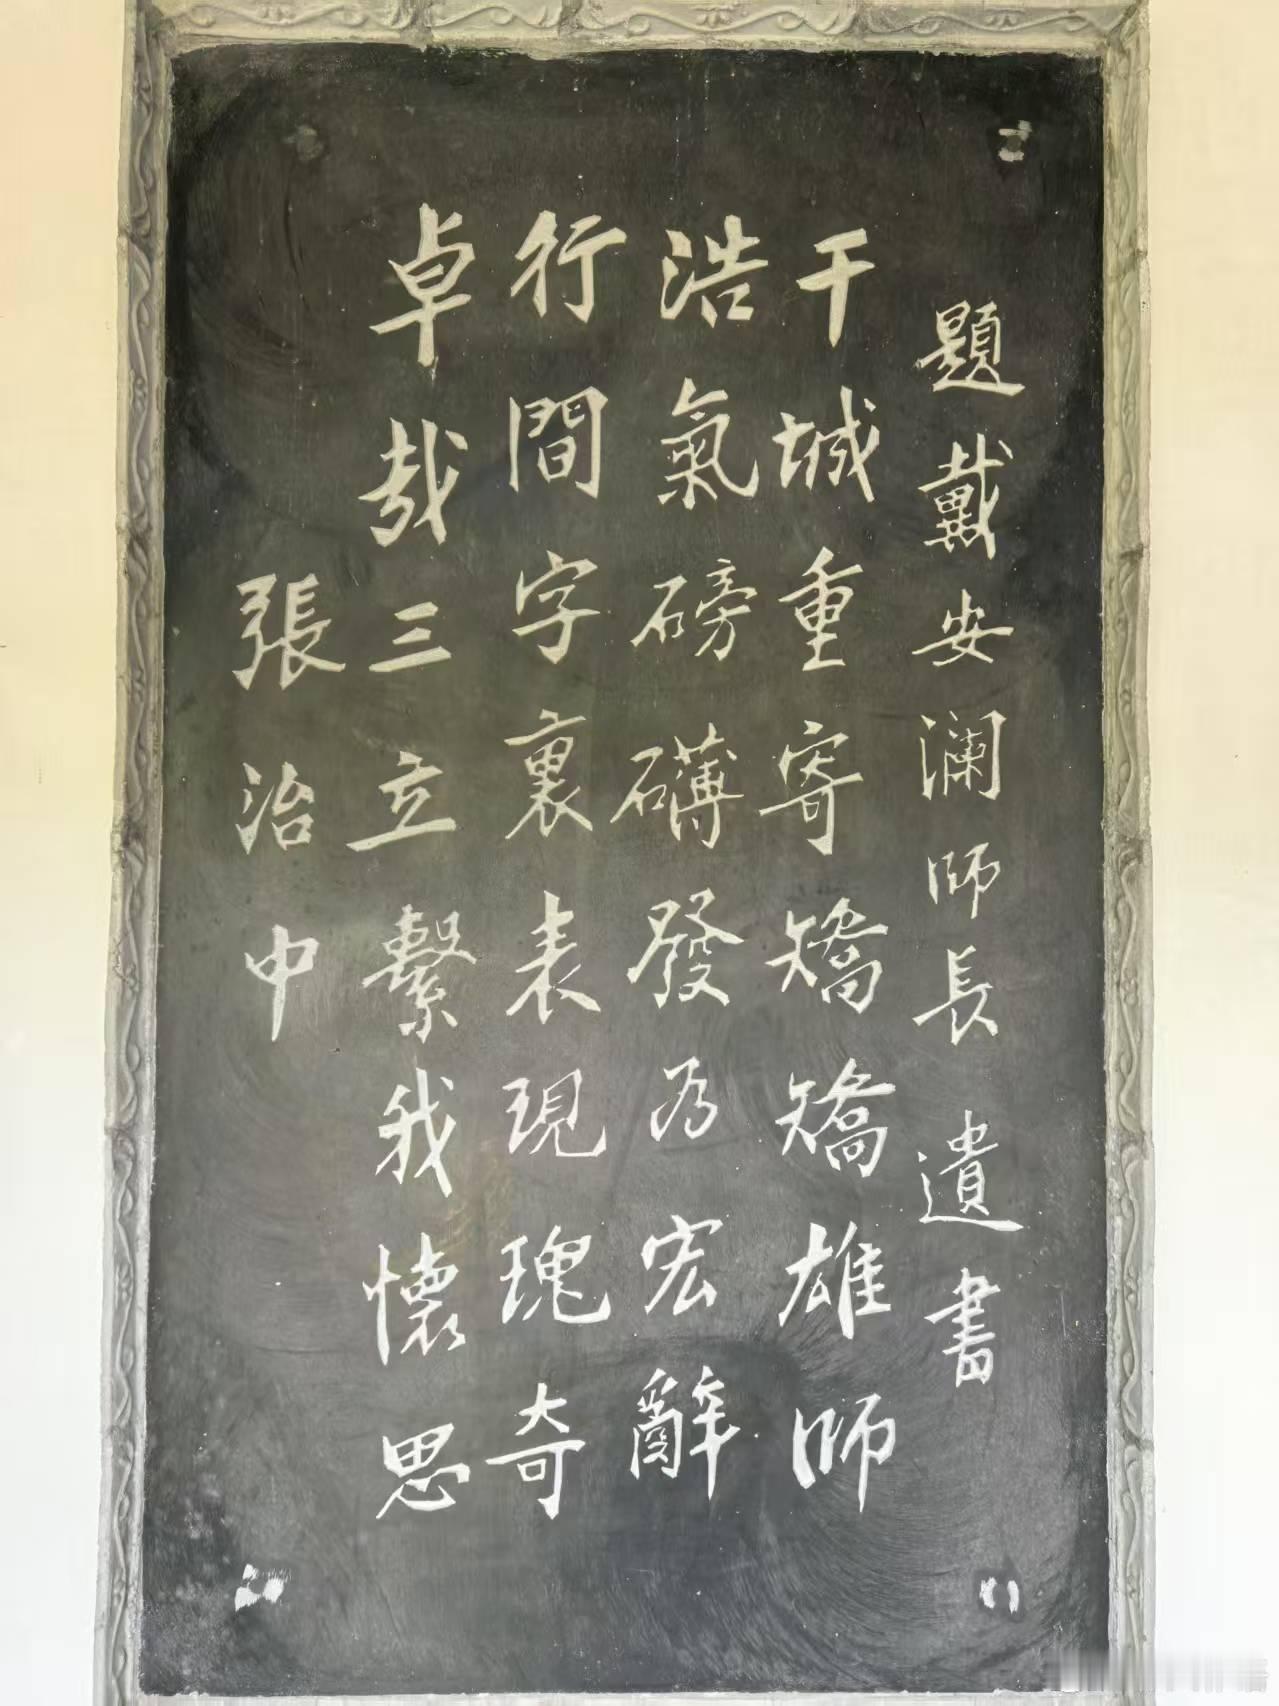 題戴安瀾師長遺書
干城重寄矯矯雄師
浩氣磅礴發为宏辭
行間字裏表現瑰奇
卓哉三立繫我懷思
張治中